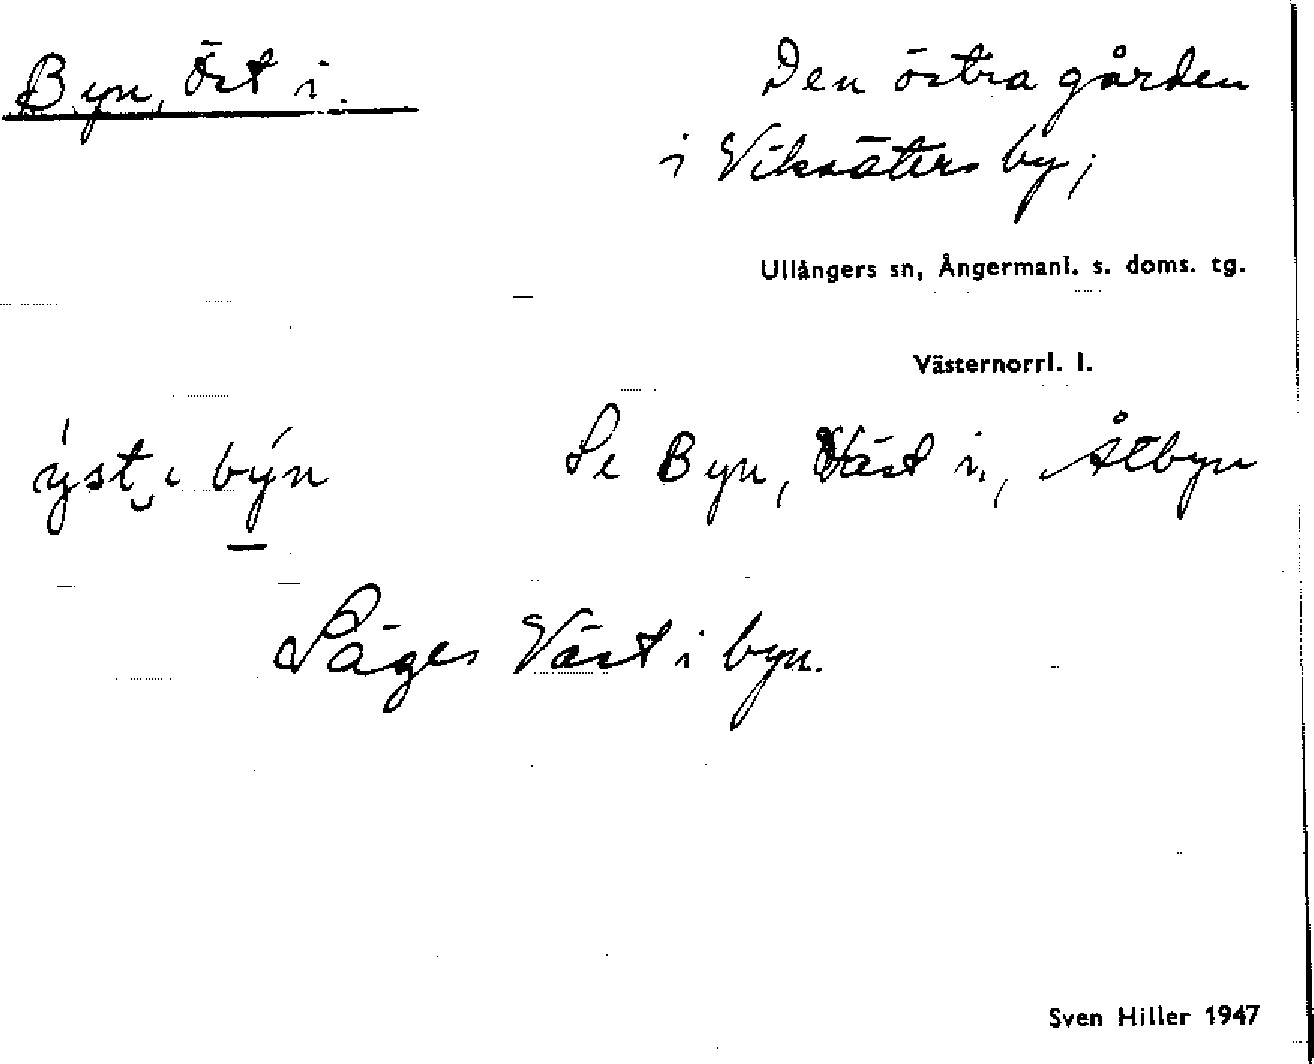 Byn, Öst i. Den östra gården
i Viksäters by,
Ullångers sn, Ångermanl. s. doms. tg.
Västernorrl. l.
ýst ı býn Se Byn, Väst i, Åtbyn
Säges Väst i byn.
Sven Hiller 1947